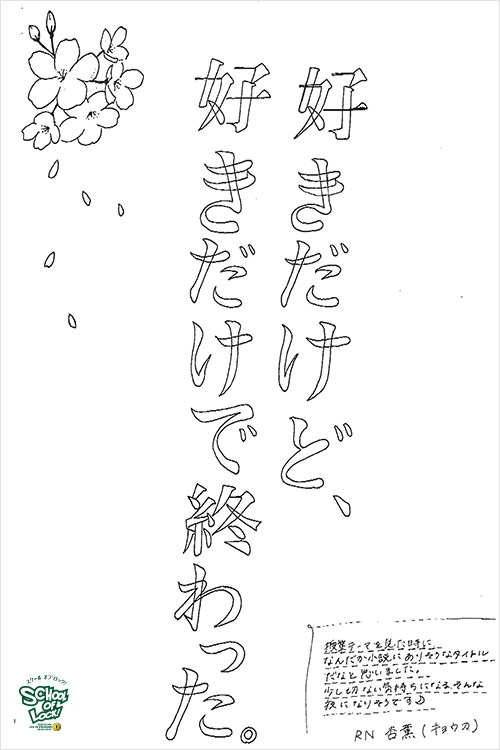 好きだけど、
好きだけで終わった。
授業テーマを見た時に、
なんだか小説にありそうなタイトル
だなと思いました。
少し切ない気持ちになえそんな
夜になりそうです♪
RN 杏薫(キョウカ)
スクール オブ ロック!
SCHOOL
OF
LOCK!